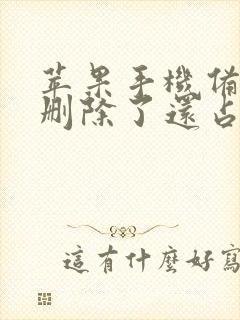 苹果手機備
删除了還占
這有什麽好寫